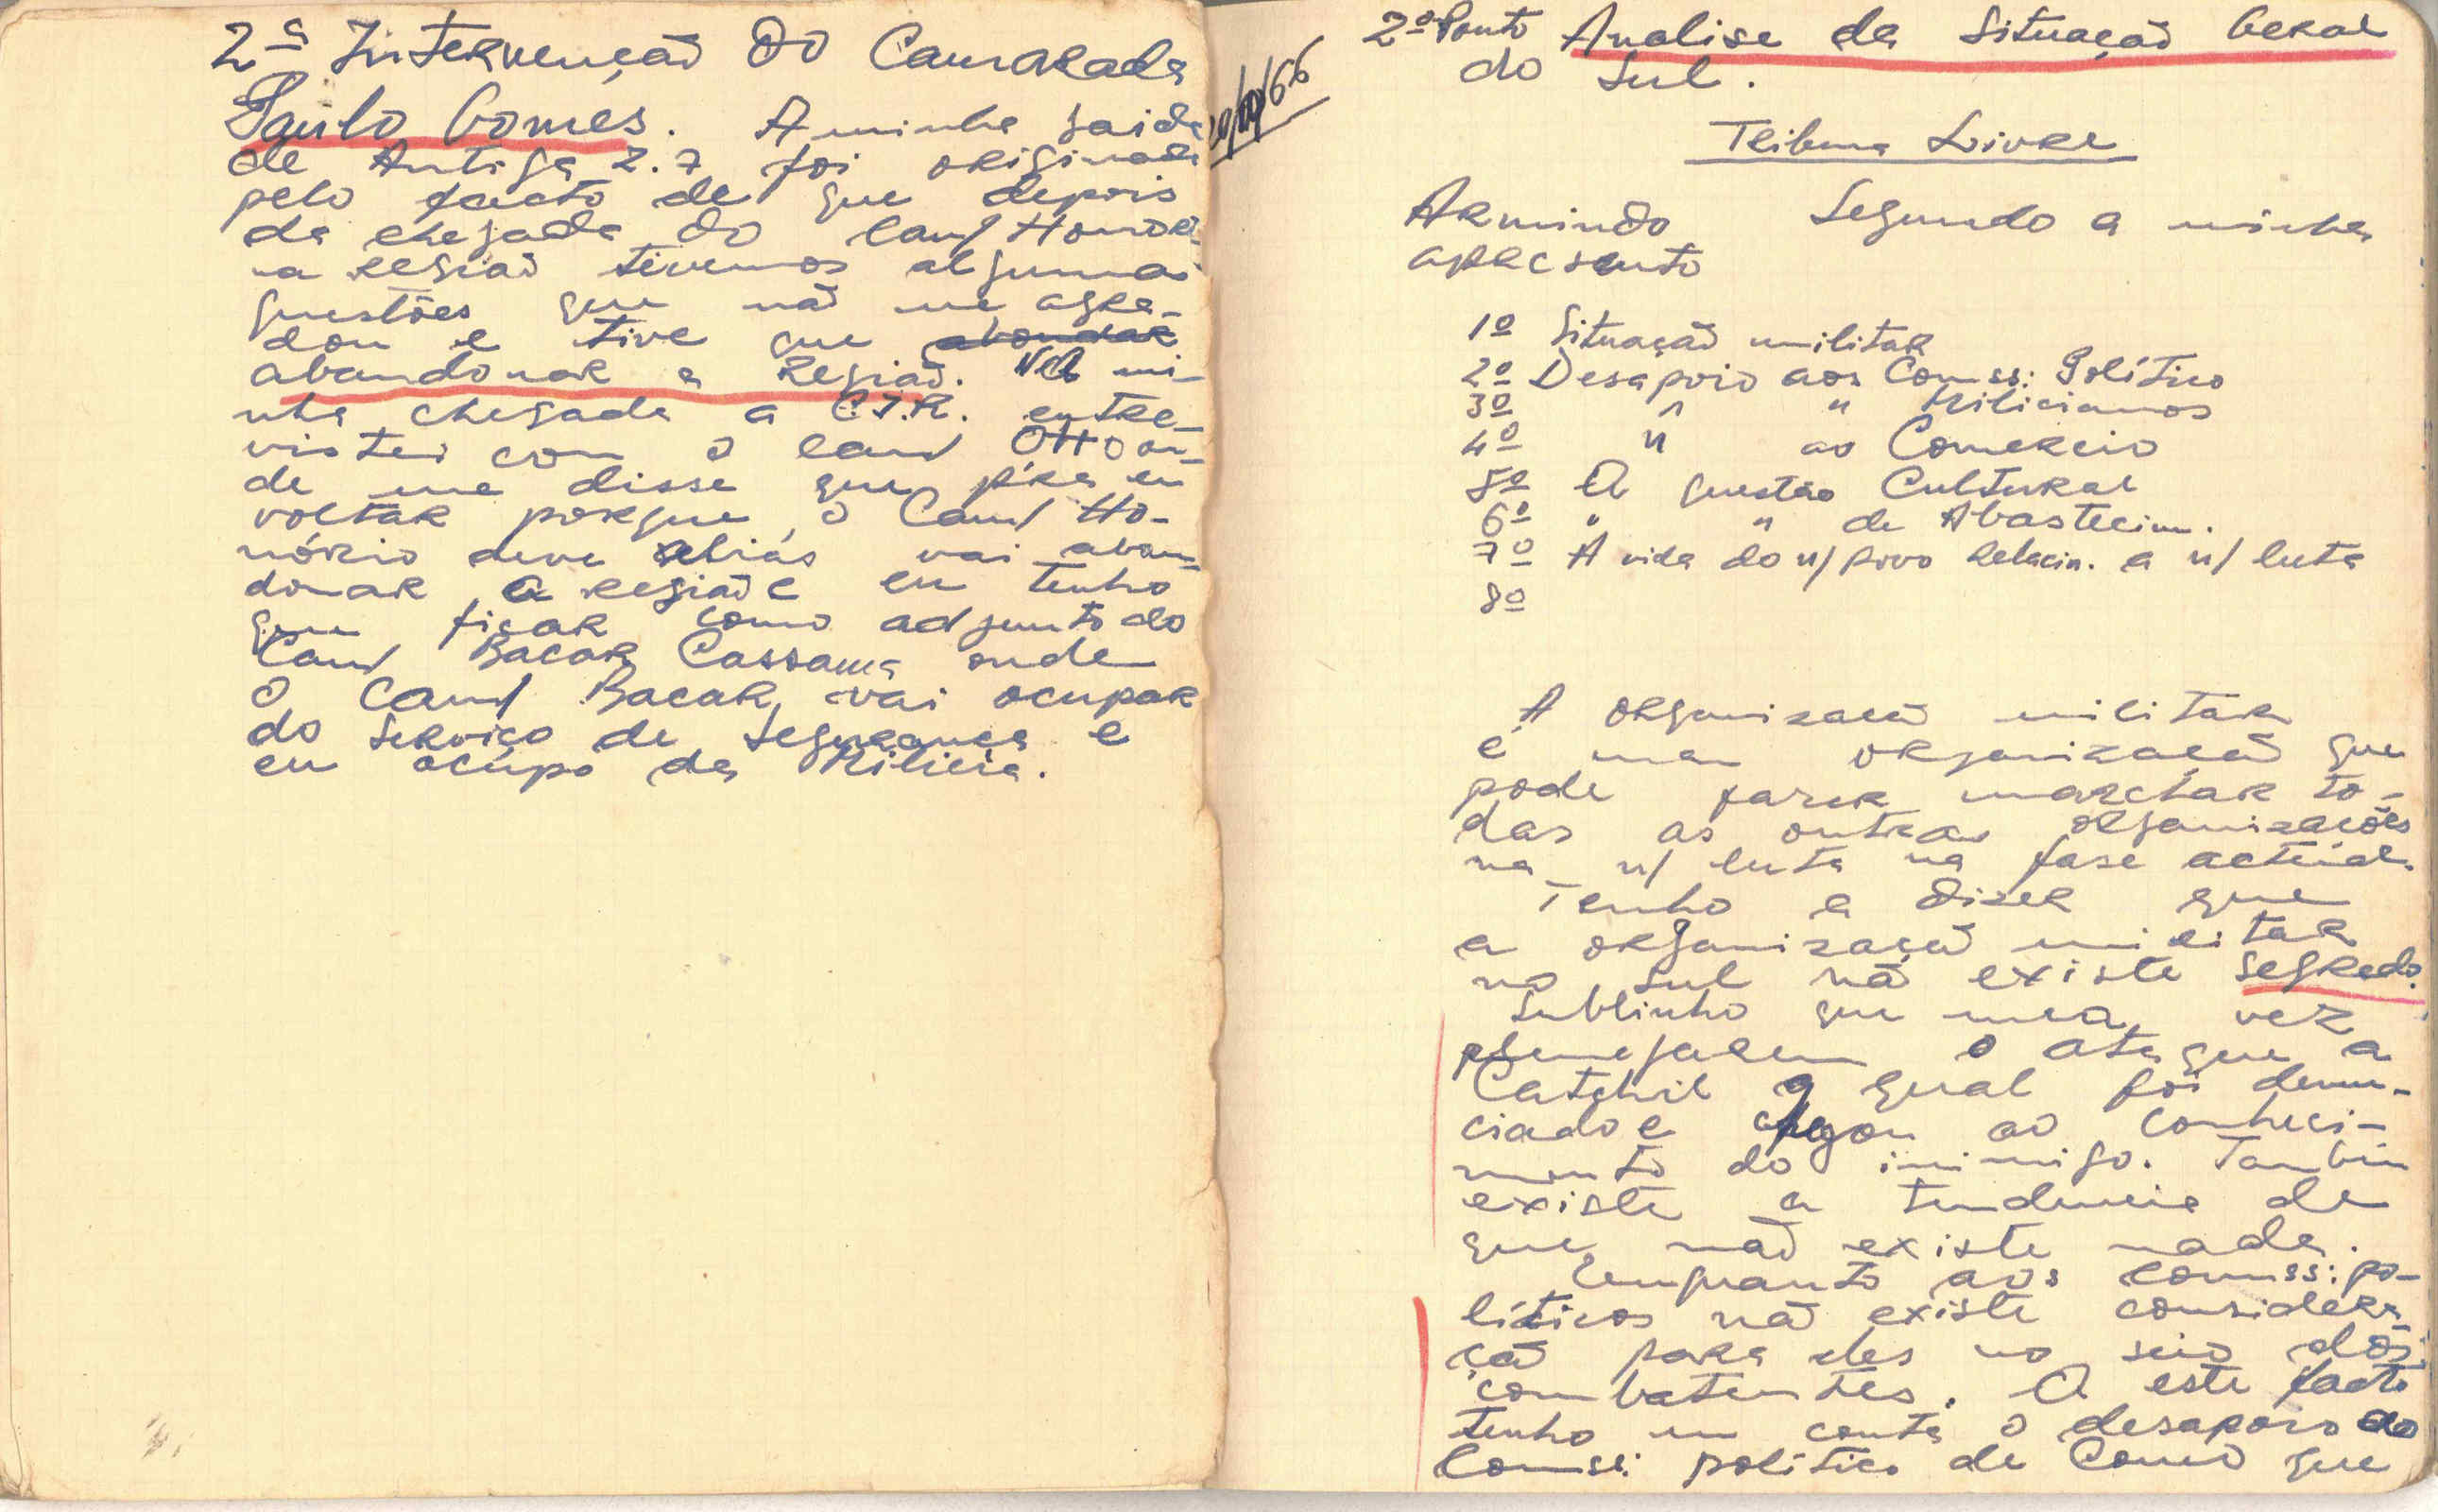 2ª Intervenção do Camarada
Paulo Gomes. A minha saida
de Antiga Z.7 foi originada
pelo facto de que depois
da chegada do Cam/ Honór
na Região tivemos algumas
questões que não me agra-
dou e tive que abondar
abandonar a Região. Na mi-
nha chegada a C.I.R. entre-
vistei com o Cam/ Otto on-
de me disse que pra eu
voltar porque o Cam/ Ho-
nório deve aliás vai aban-
donar a Região e eu tenho
que ficar como adjunto do
Cam/ Bacar Cassamá onde
o Cam/ Bacar vai ocupar
do Serviço de Segurança e
eu ocupo da Milicia.
2º Ponto Analise da Situação Geral
do Sul.
Tribuna Livre
Armindo Segundo a minha
apresento
1º Situação militar
2º Desapoio aos Comss: Político
3º " " Milicianos
4º " ao Comercio
5º A questão Cultural
6º " " de Abastecim.
7º A vida do n/ povo relacin. a n/ luta
8º
A organizacão militar
é uma organizacão que
pode fazer marchar to-
das as outras organizações
na n/ luta na fase actual.
Tenho a dizer que
a organização militar
no Sul não existe segredo.
Sublinho que uma vez
planejarem o ataque a
Catchil o qual foi denun-
ciado e chegou ao conheci-
mento do inimigo. Tambem
existe a tendencia de
que não existe nada.
Enquanto aos comss: po-
líticos não existe considera-
ção para eles no seio dos
combatentes. A este facto
tenho em conta o desapoio do
Comss: politico de Como que